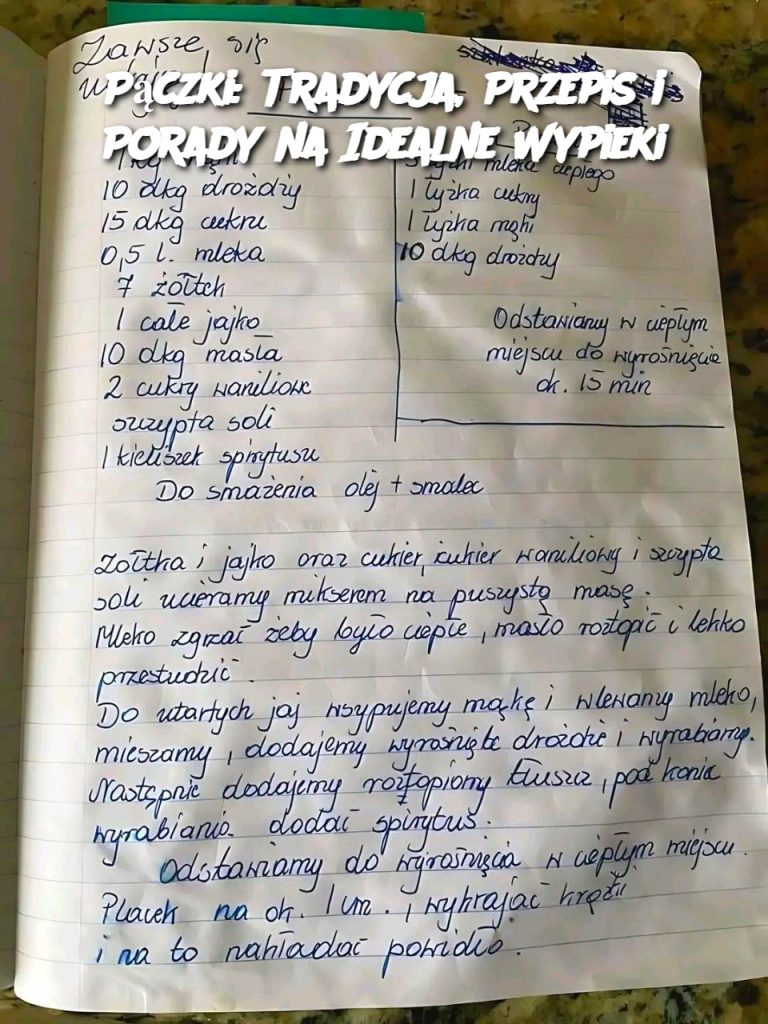 Zawsze się
Pączki: Tradycja, Przepis i
Porady na Idealne Wypieki
1 kg
10 dkg drożdży
15 dkg cukru
0,5 l. mleka
7 żółtek
1 całe jajko
10 dkg masła
2 cukry waniliowe
szczypta soli
1 kieliszek spirytusu
Do smażenia olej + smalec
mleka ciepłego
1 łyżka cukry
1 łyżka mąki
10 dkg drożdży
Odstawiamy w ciepłym
miejscu do wyrośnięcia
ok. 15 min
Żółtka i jajko oraz cukier, cukier waniliowy i szczypta
soli ucieramy mikserem na puszystą masę.
Mleko zgrzać żeby było ciepłe, masło roztopić i lekko
przestudzić.
Do utartych jaj wsypujemy mąkę i wlewamy mleko,
mieszamy, dodajemy wyrośnięte drożdże i wyrabiamy.
Następnie dodajemy roztopiony tłuszcz, pod konic
wyrabiania dodać spirytus.
Odstawiamy do wyrośnięcia w ciepłym miejscu.
Placek na ok. 1 cm., wykrajać krążki
i na to nakładać powidło.